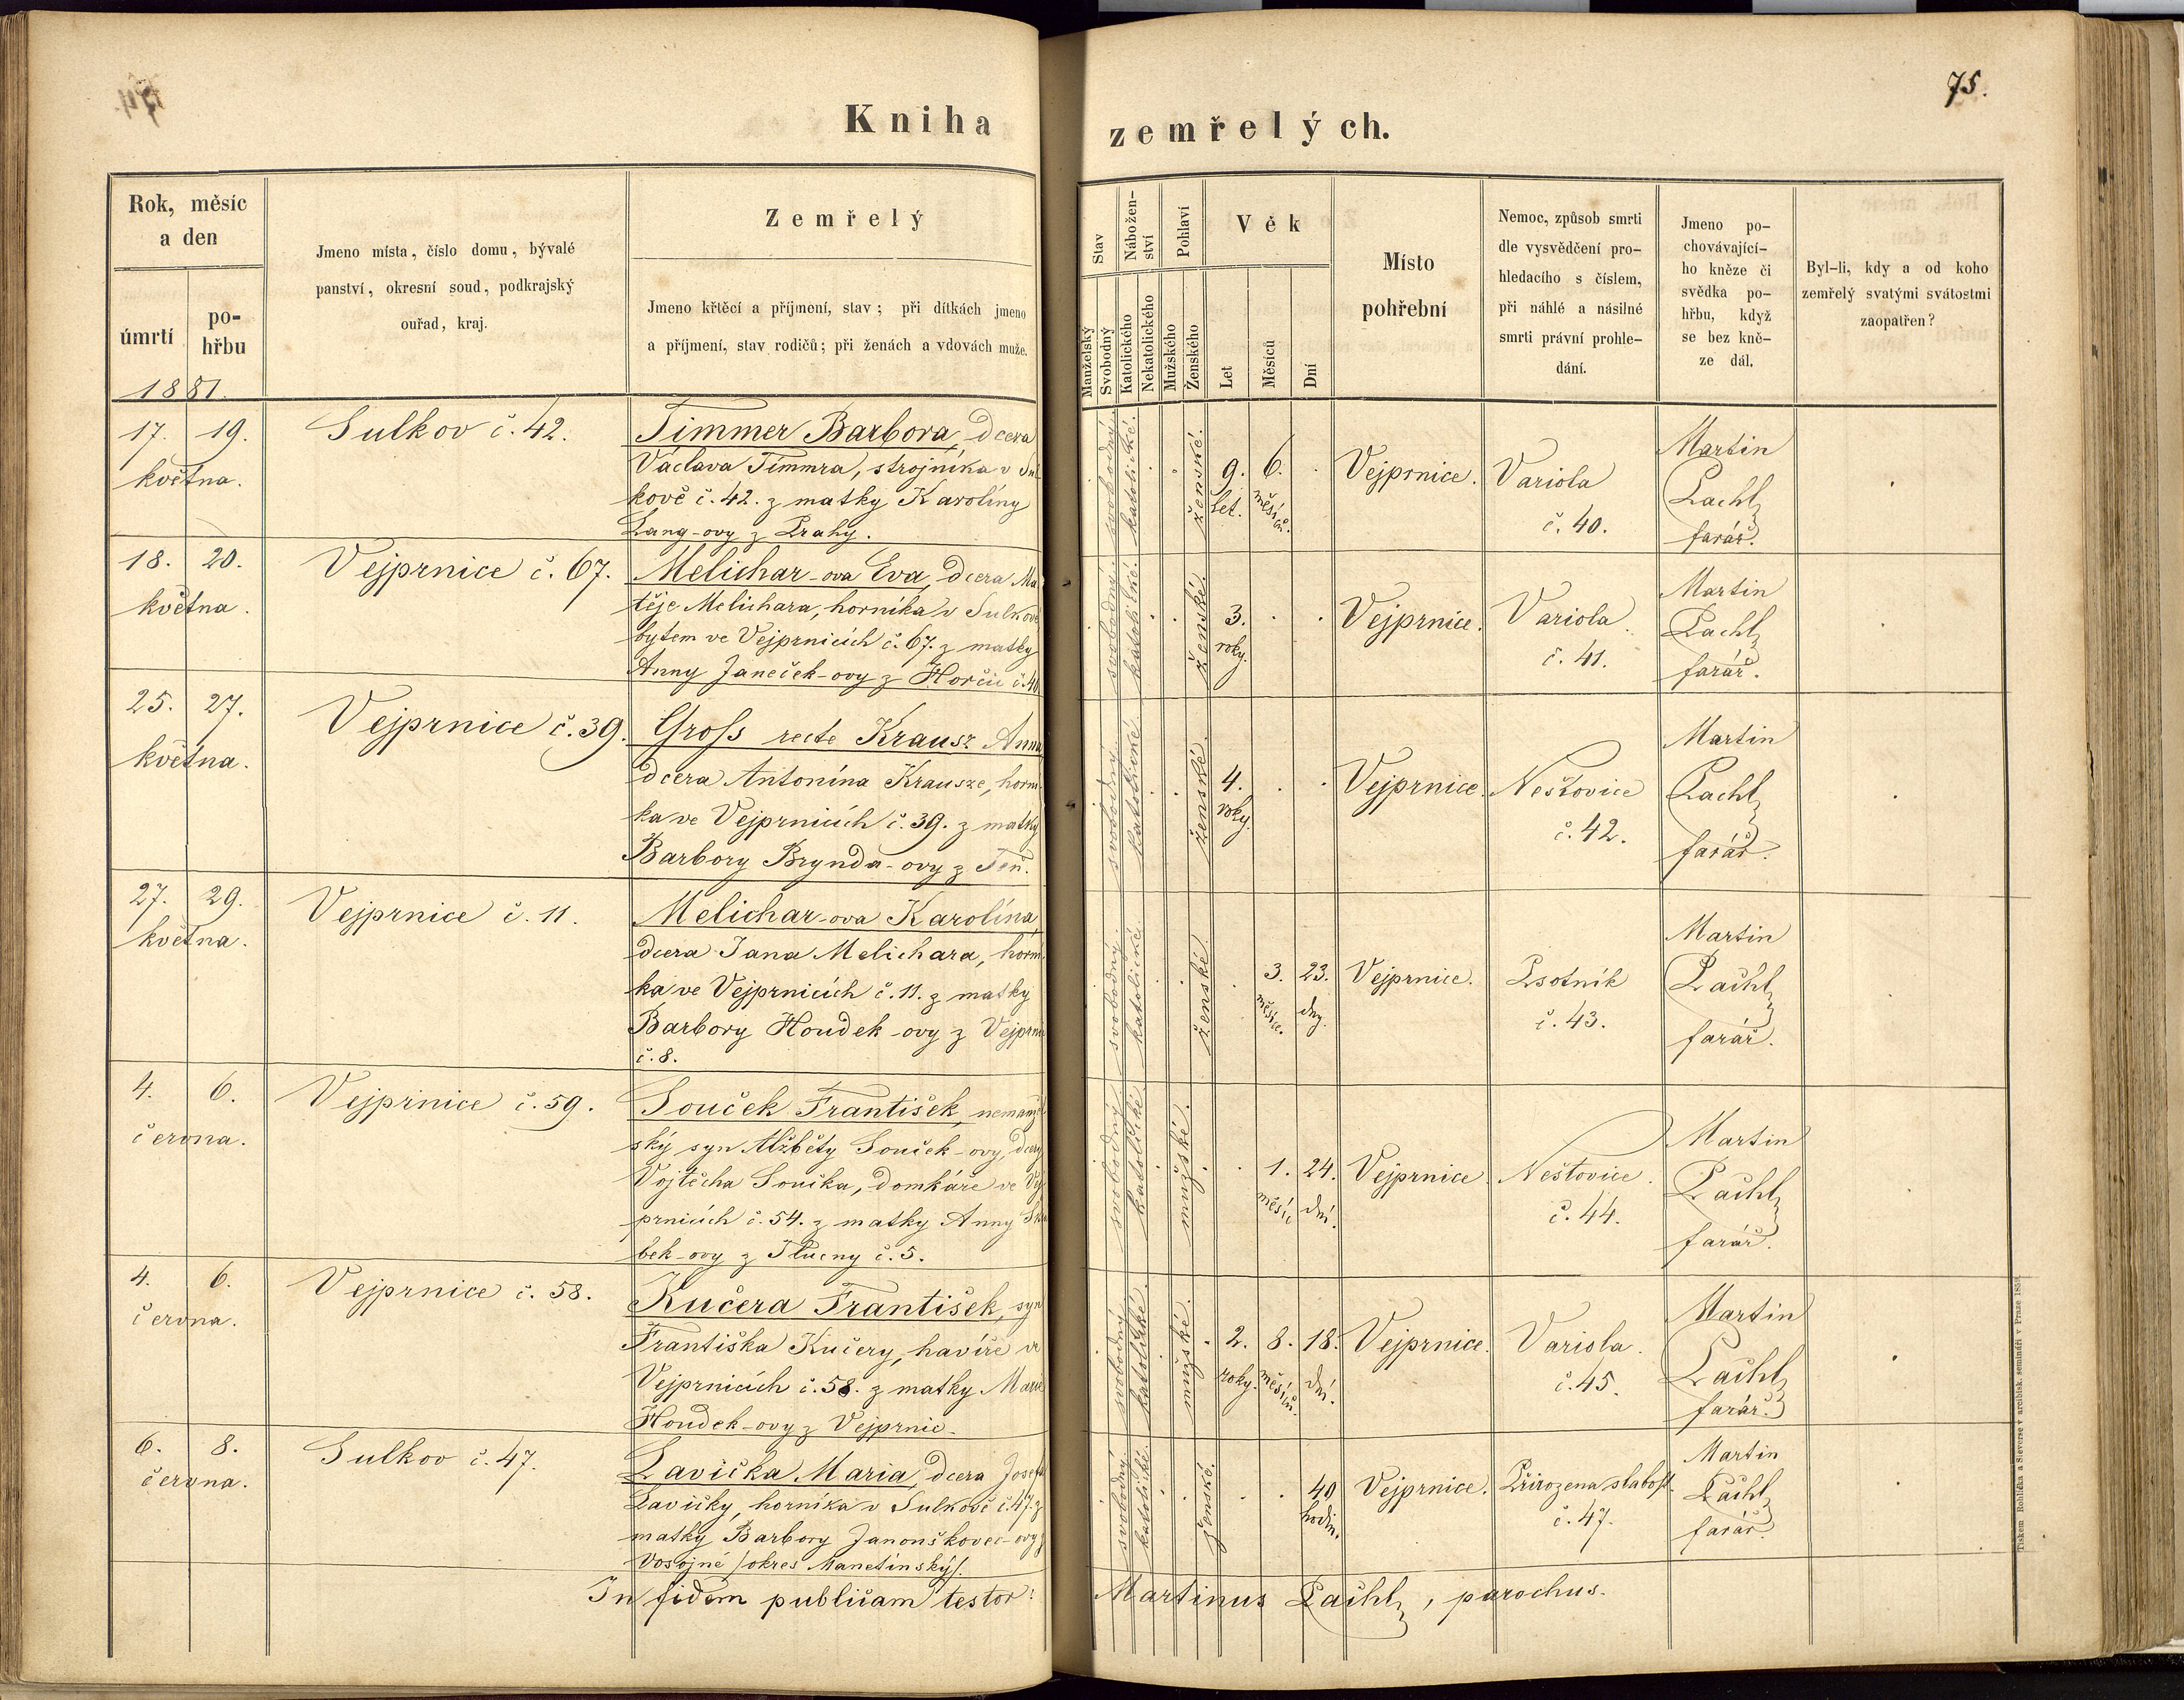 75.
Kniha zemřelých.
Rok, měsíc
a den
úmrtí
po-
hřbu
1881.
Jmeno místa, číslo domu, bývalé
panství, okresní soud, podkrajský
ouřad, kraj.
Zemřelý
Jmeno křtěcí a příjmení, stav; při dítkách jmeno
a příjmení, stav rodičů; při ženách a vdovách muže.
Stav
Manželský
Svobodný
Nábožen-
ství
Katolického
Nekatolického
Pohlaví
Mužského
Ženského
Věk
Let
Měsíců
Dní
Místo
pohřební
Nemoc, způsob smrti
dle vysvědčení pro-
hledacího s číslem,
při náhlé a násilné
smrti právní prohle-
dání.
Jmeno po-
chovávající-
ho kněze či
svědka po-
hřbu, když
se bez kně-
ze dál.
Byl-li, kdy a od koho
zemřelý svatými svátostmi
zaopatřen?
17. 19.
května.
Sulkov č. 42.
Timmer Barbora, dcera
Václava Timmra, strojníka v Sul
kově č. 42. z matky Karolíny
Lang-ovy z Prahy.
svobodný.
katolické.
ženské.
9. 6.
let. měsíců.
Vejprnice.
Variola
č. 40.
Martin
Pachl,
farář.
18. 20.
května.
Vejprnice č. 67.
Melichar-ova Eva, dcera Ma
těje Melichara, horníka v Sulkově
bytem ve Vejprnicích č. 67. z matky
Anny Janeček-ovy z Hořic č. 40
svobodný.
katolické.
ženské.
3.
roky.
Vejprnice.
Variola
č. 41.
Martin
Pachl,
farář.
25. 27.
května.
Vejprnice č. 39.
Gross recte Krausz Anna
dcera Antonína Krausze, horní
ka ve Vejprnicích č. 39. z matky
Barbory Brynda-ovy z
svobodný.
katolické
ženské.
4.
roky.
Vejprnice.
Neštovice
č. 42.
Martin
Pachl,
farář.
27. 29.
května.
Vejprnice č. 11.
Melichar-ova Karolína,
dcera Jana Melichara, horní
ka ve Vejprnicích č. 11. z matky
Barbory Houdek-ovy z Vejprnic
č. 8.
svobodný.
katolické
ženské.
3. 23.
měsíce. dny.
Vejprnice.
Psotník
č. 43.
Martin
Pachl,
farář.
4. 6.
června.
Vejprnice č. 59.
Souček František, nemanžel
ský syn Alžběty Souček-ovy, dcery
Vojtěcha Součka, domkáře ve Vej
prnicích č. 54. z matky Anny
bek-ovy z Tlučny č. 5.
svobodný
katolické
mužské.
1. 24.
měsíc dní.
Vejprnice.
Neštovice.
č. 44.
Martin
Pachl,
farář.
4. 6.
června.
Vejprnice č. 58.
Kučera František, syn
Františka Kučery, havíře ve
Vejprnicích č. 58. z matky Marie
Houdek-ovy z Vejprnic.
svobodný
katolické.
mužské.
2. 8. 18.
roky. měsíců. dní.
Vejprnice.
Variola.
č. 45.
Martin
Pachl,
farář.
6. 8.
června.
Sulkov č. 47.
Lavička Maria, dcera Josefa
Lavičky, horníka v Sulkově č. 47. z
matky Barbory Janouškovec-ovy z
Vosojné /okres Manetínský/.
svobodný.
katolické.
ženské.
40
hodin.
Vejprnice.
Přirozena slabost.
č. 47.
Martin
Pachl,
farář.
In fidem publicam testor: Martinus Pachl, parochus.
Tiskem Rohlíčka a Sieverse v arcibisk. semináři v Praze 1859.